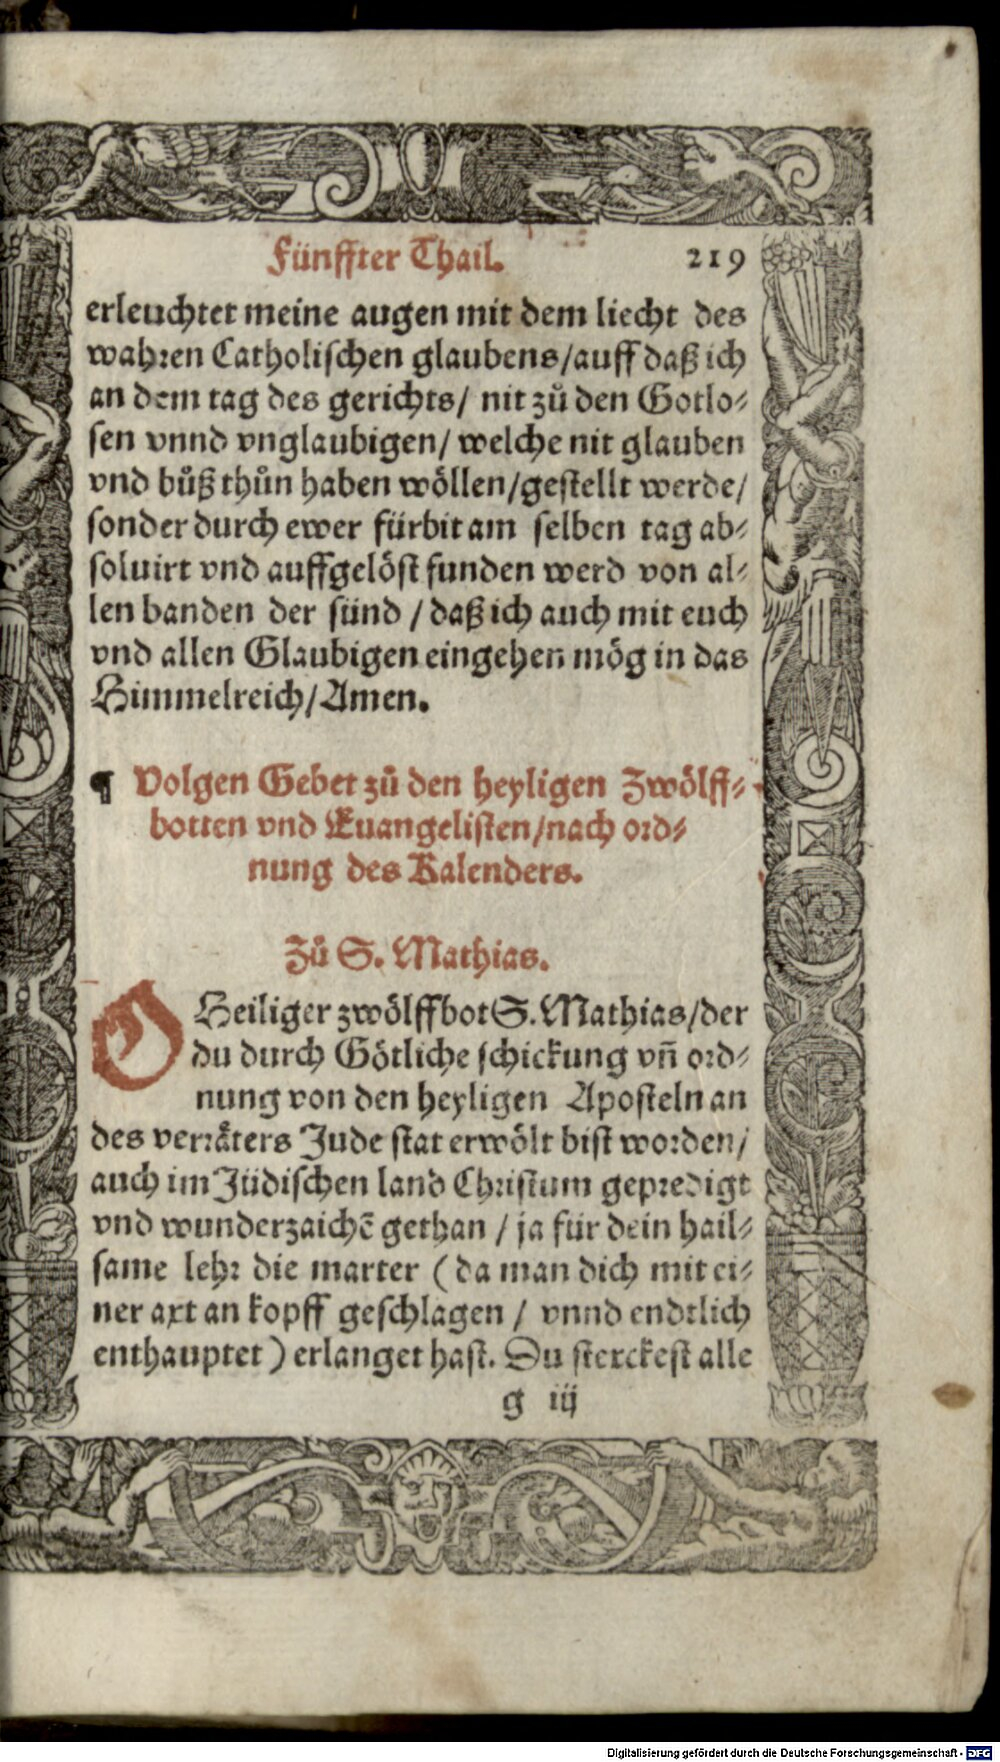 Fünffter Thail. 219
erleuchtet meine augen mit dem liecht des
wahren Catholischen glaubens/auff daß ich
an dem tag des gerichts/ nit zů den Gotlo⸗
sen vnnd vnglaubigen/ welche nit glauben
vnd bůß thůn haben wöllen/gestellt werde/
sonder durch ewer fürbit am selben tag ab⸗
soluirt vnd auffgelöst funden werd von al⸗
len banden der sünd / daß ich auch mit euch
vnd allen Glaubigen eingehen mög in das
Himmelreich/Amen.
¶ Volgen Gebet zů den heyligen Zwölff⸗
botten vnd Euangelisten/nach ord⸗
nung des Kalenders.
Zů S. Mathias.
O Heiliger zwölffbot S. Mathias/der
du durch Götliche schickung vn̄ ord⸗
nung von den heyligen Aposteln an
des verräters Jude stat erwölt bist worden/
auch im Jüdischen land Christum gepredigt
vnd wunderzaichē gethan / ja für dein hail⸗
same lehr die marter (da man dich mit ei⸗
ner axt an kopff geschlagen / vnnd endtlich
enthauptet) erlanget hast. Du sterckest alle
g iij
Digitalisierung gefördert durch die Deutsche Forschungsgemeinschaft - DFG